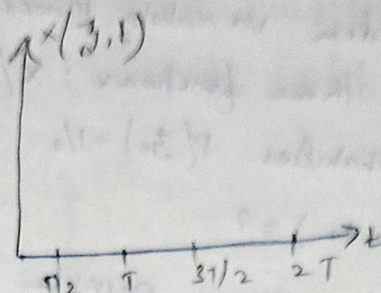 x(3,1)
t
T/2 T 3T/2 2T